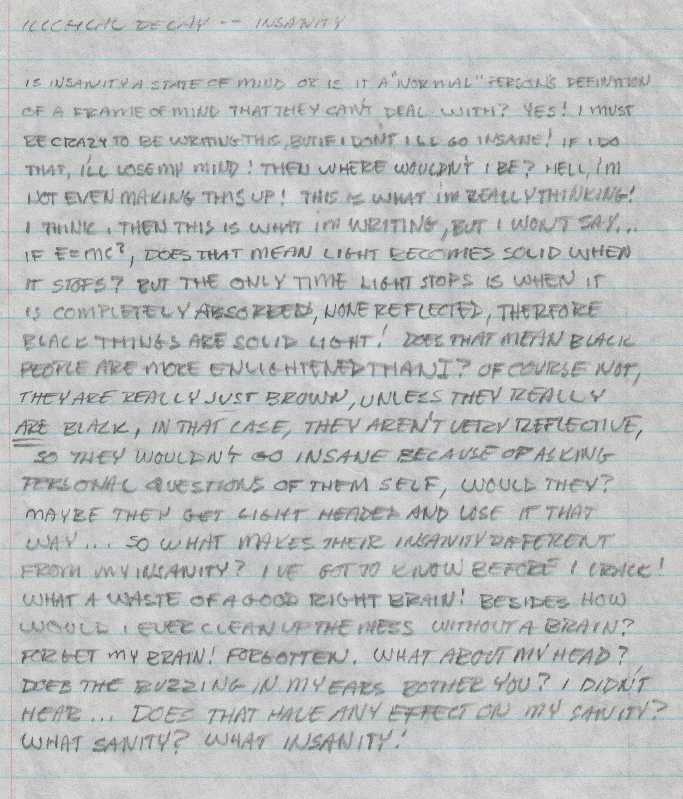 DECAY -- INSANITY
IS INSANITY A STATE OF MIND OR IS IT A "NORMAL" PERSON'S DEFINITION
OF A FRAME OF MIND THAT THEY CAN'T DEAL WITH? YES! I MUST
BE CRAZY TO BE WRITING THIS, BUT IF I DON'T I'LL GO INSANE! IF I DO
THAT, I'LL LOSE MY MIND! THEN WHERE WOULDN'T I BE? HELL, I'M
NOT EVEN MAKING THIS UP! THIS IS WHAT I'M REALLY THINKING!
I THINK, THEN THIS IS WHAT I'M WRITING, BUT I WON'T SAY...
IF E=MC², DOES THAT MEAN LIGHT BECOMES SOLID WHEN
IT STOPS? BUT THE ONLY TIME LIGHT STOPS IS WHEN IT
IS COMPLETELY ABSORBED, NONE REFLECTED, THEREFORE
BLACK THINGS ARE SOLID LIGHT! DOES THAT MEAN BLACK
PEOPLE ARE MORE ENLIGHTENED THAN I? OF COURSE NOT,
THEY ARE REALLY JUST BROWN, UNLESS THEY REALLY
ARE BLACK, IN THAT CASE, THEY AREN'T VERY REFLECTIVE,
SO THEY WOULDN'T GO INSANE BECAUSE OF ASKING
PERSONAL QUESTIONS OF THEM SELF, WOULD THEY?
MAYBE THEY GET LIGHT HEADED AND LOSE IT THAT
WAY... SO WHAT MAKES THEIR INSANITY DIFFERENT
FROM MY INSANITY? I'VE GOT TO KNOW BEFORE I CRACK!
WHAT A WASTE OF A GOOD RIGHT BRAIN! BESIDES HOW
WOULD I EVER CLEAN UP THE MESS WITHOUT A BRAIN?
FORGET MY BRAIN! FORGOTTEN. WHAT ABOUT MY HEAD?
DOES THE BUZZING IN MY EARS BOTHER YOU? I DIDN'T
HEAR... DOES THAT HAVE ANY EFFECT ON MY SANITY?
WHAT SANITY? WHAT INSANITY!